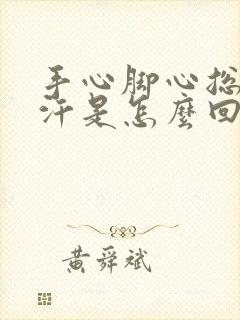 手心脚心总
汗是怎麼回
黄舜斌